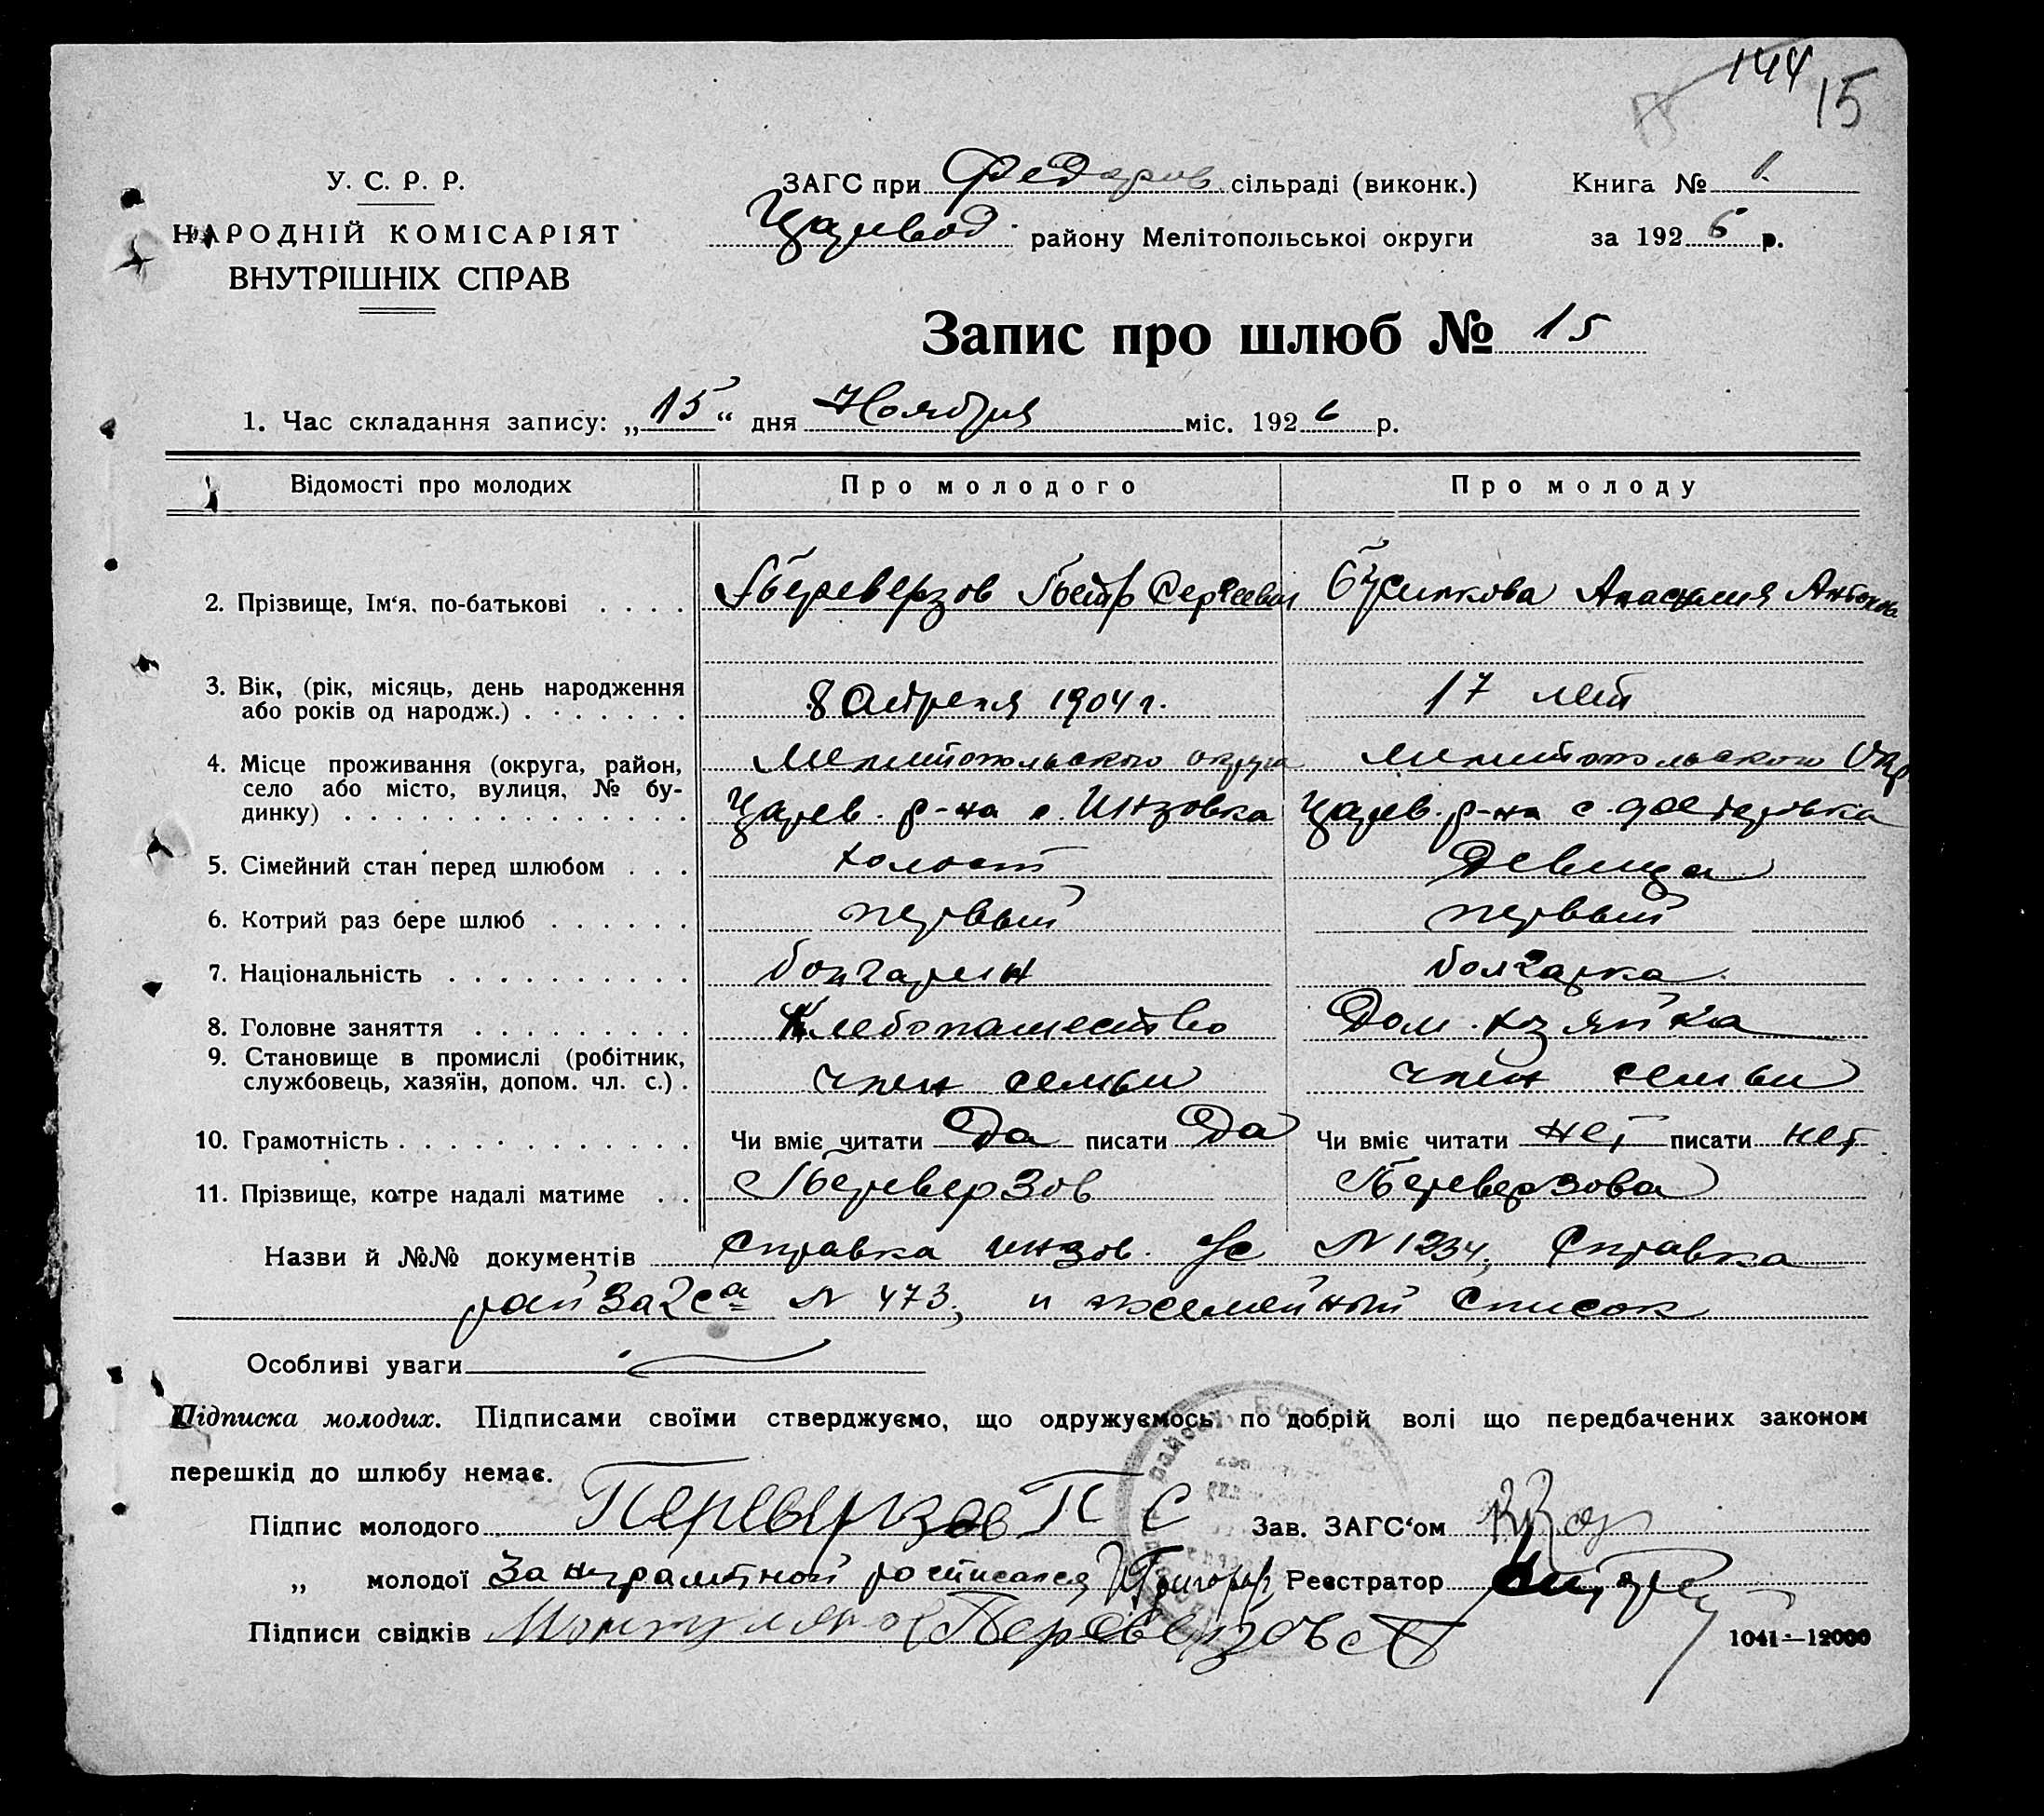 144 15
У. С. Р. Р.
НАРОДНІЙ КОМІСАРІЯТ
ВНУТРІШНІХ СПРАВ
ЗАГС при Федоров. сільраді (виконк.)
Царевод. району Мелітопольської округи
Книга № 1.
за 1926 р.
Запис про шлюб № 15
1. Час складання запису: „15“ дня Ноября міс. 1926 р.
Відомості про молодих Про молодого Про молоду
2. Прізвище, Ім‘я, по-батькові . . . . Переверзов Петр Сергеевич Анастасия Антонов
3. Вік, (рік, місяць, день народження 8 Апреля 1904 г. 17 лет
або років од народж.) . . . . . . .
4. Місце проживання (округа, район, Мелитопольского округа Мелитопольского Окр
село або місто, вулиця, № бу- Царев. р-на с. Инзовка Царев. р-на с. Федоровка
динку) . . . . . . . . . . . . . .
5. Сімейний стан перед шлюбом . . . холост Девица
6. Котрий раз бере шлюб . . . . . . первый первый
7. Національність . . . . . . . . . . болгарин болгарка
8. Головне заняття . . . . . . . . . Хлебопашество Дом. хозяйка
9. Становище в промислі (робітник, член семьи член семьи
службовець, хазяїн, допом. чл. с.) .
10. Грамотність . . . . . . . . . . . . Чи вміє читати Да писати Да Чи вміє читати нет писати нет
11. Прізвище, котре надалі матиме . . Переверзов Переверзова
Назви й №№ документів Справка Инзов. с/с № 1234, Справка
рай Загса № 473, и посемейный список
Особливі уваги
Підписка молодих. Підписами своїми стверджуємо, що одружуємось по добрій волі що передбачених законом
перешкід до шлюбу немає.
Підпис молодого Переверзов П С Зав. ЗАГС‘ом
„ молодої За неграмотной росписался Реєстратор
Підписи свідків Переверзов
1041—12000